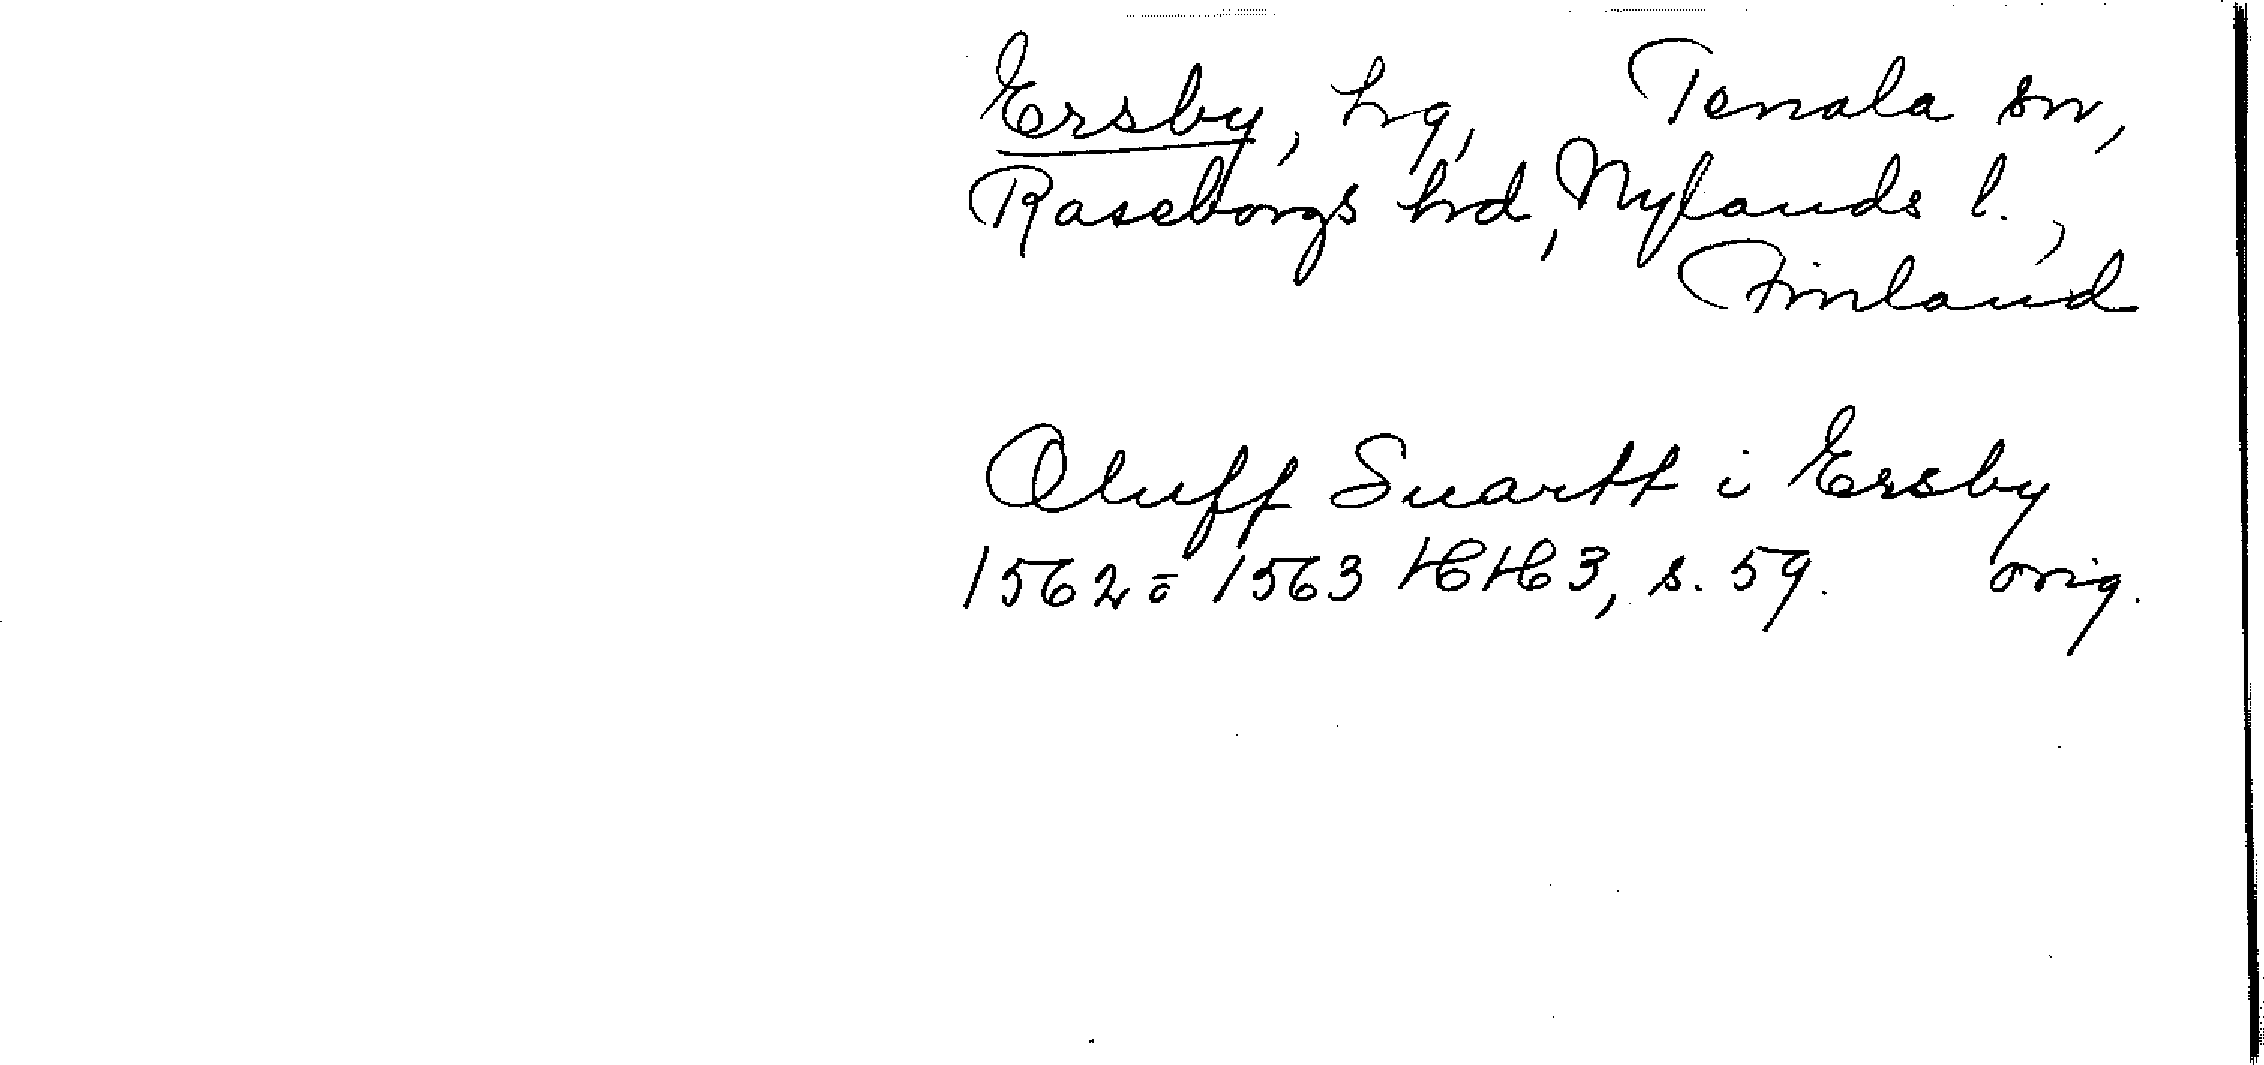 Ersby, hg, Tenala sn,
Raseborgs hrd, Nylands l.,
Finland
Oluff Suartt i Ersby
1562 ō 1563 HH 3, s. 59. orig.